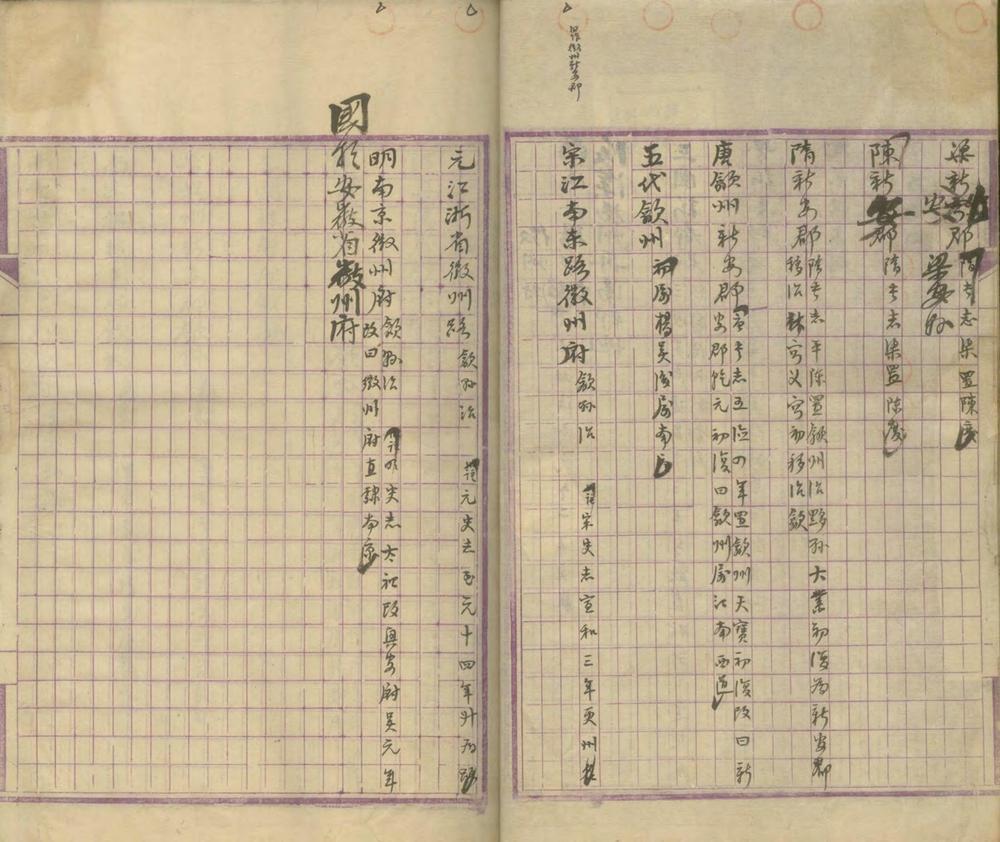 梁新安郡 隋書志梁置陳廢
梁安縣
陳新安郡 隋書志梁置陳廢
隋新安郡 隋書志平陳置歙州治黟縣大業初復為新安郡
移治休寧義寧初移治歙
唐歙州新安郡 唐書志武德四年置歙州天寶初復改曰新
安郡乾元初復曰歙州屬江南西道
五代歙州 初屬楊吳後屬南唐
羅徽州新安郡
宋江南東路徽州府 歙縣治 宋史志宣和三年更州
元江浙省徽州路 歙縣治 元史志至元十四年升為路
明南京徽州府 歙縣治 明史志太祖改興安府吳元年
改曰徽州府直隸南京
國朝安徽省徽州府